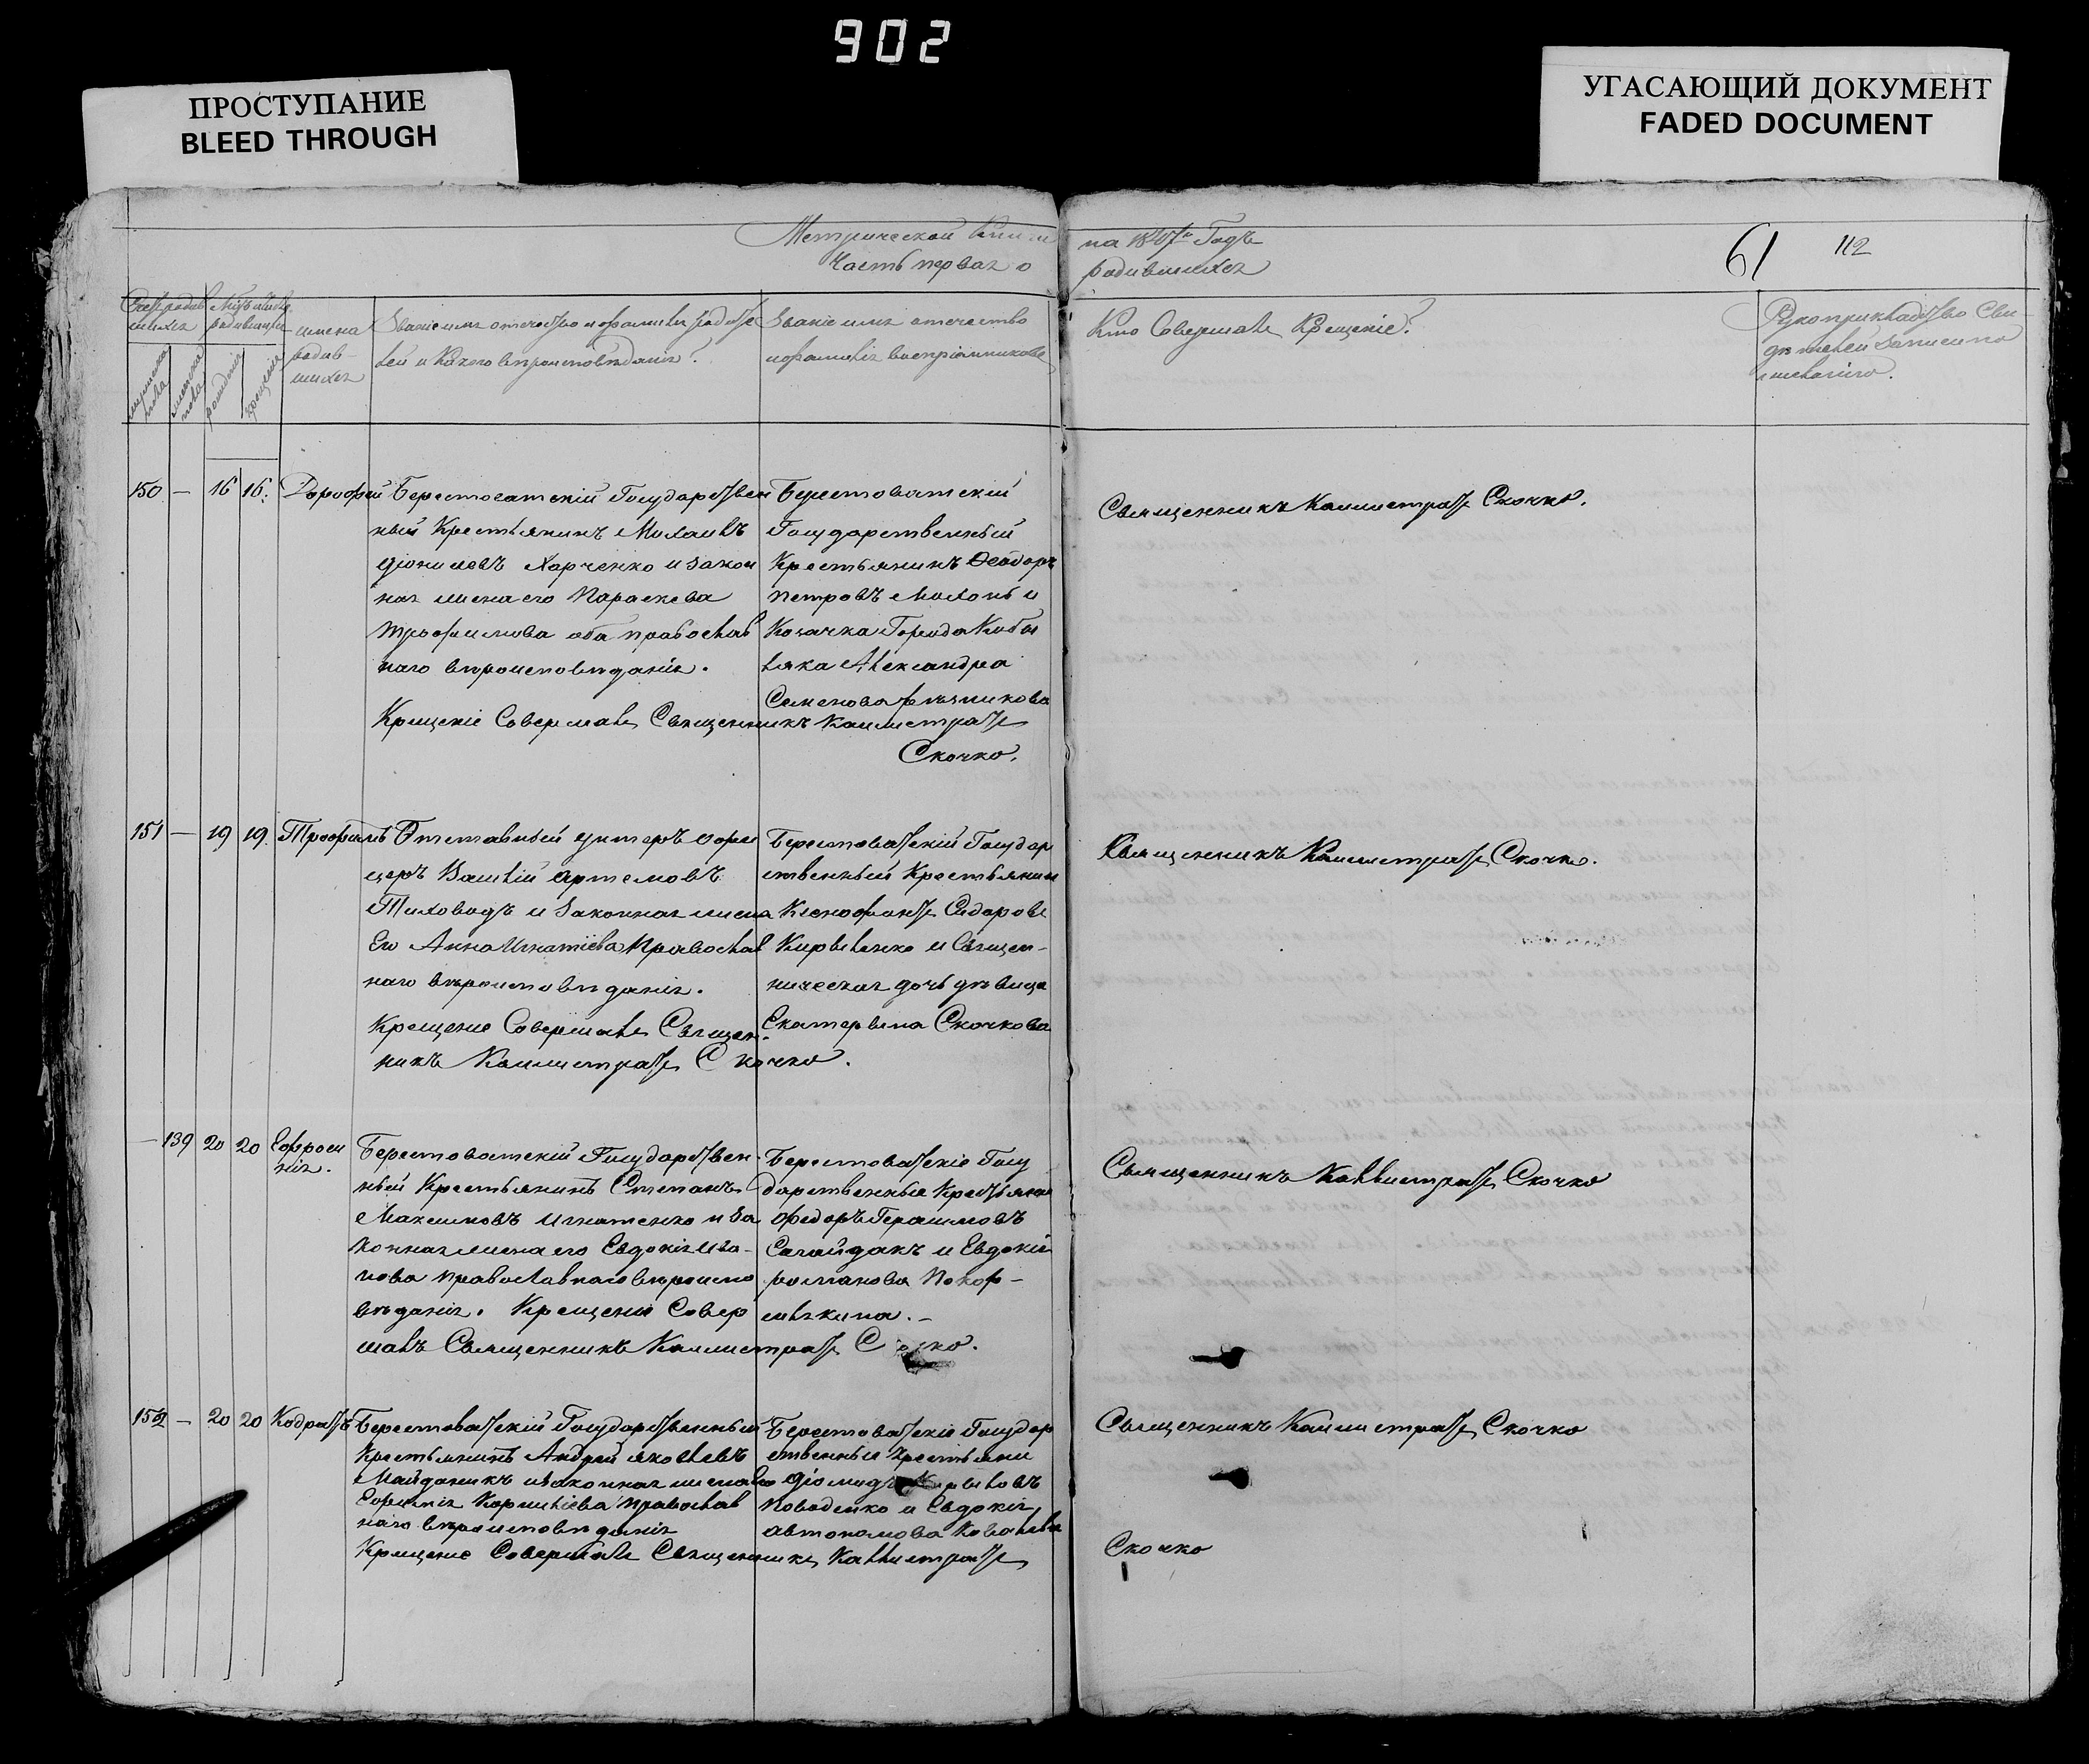 902
ПРОСТУПАНИЕ
BLEED THROUGH
УГАСАЮЩИЙ ДОКУМЕНТ
FADED DOCUMENT
Метрической Книги на Годъ
Часть первая о родившихся
61 112
имена родив-шихся
Званіе имя отечество и фамилія родите
лей и какого вѣроисповѣданія?
Званіе имя отечество
и фамилія воспріемниковъ
Кто Совершалъ Крещеніе?
Рукоприкладство Сви-
дѣтелей записи по
желанію.
150 — 16 16. Дорофей
Берестоватскій Государствен
ный Крестьянинъ Михаилъ
Діонисіевъ Харченко и закон
ная жена его Параскева
Трофимова оба православ
наго вѣроисповѣданія.
Крещеніе Совершалъ Священникъ Каллистратъ
Скочко.
Берестоватскій
Государственный
Крестьянинъ Ѳеодоръ
Петровъ и
Козачка Города Кобы
ляка Александра
Семенова
Священникъ Каллистратъ Скочко.
151 — 19 19. Трофимъ
Отставный унтеръ офи
церъ Василій Артемовъ
Тиховодъ и законная жена
Его Анна Игнатіева Православ
наго вѣроисповѣданія.
Крещение Совершалъ Священ-
никъ Каллистратъ Скочко.
Берестоватскій Государ
ственный Крестьянинъ
Ксенофонтъ Сидоровъ
Кириленко и Священ-
ническая дочь дѣвица
Екатерина Скочкова
Священникъ Каллистратъ Скочко.
— 139 20 20 Ефроси
нія.
Берестоватскій Государствен-
ный Крестьянинъ Степанъ
Максимовъ Игнатенко и за
конная жена его Евдокія Ива-
нова православнаго вѣроиспо
вѣданія. Крещеніе Совер
шалъ Священникъ Каллистратъ
Берестоватскіе Госу
дарственные Крестьяне
Федоръ Герасимовъ
Сагайдакъ и Евдокія
романова
Священникъ Каллистратъ Скочко
152 — 20 20 Кодратъ
Берестоватскій Государственный
Крестьянинъ Андрей Яковлевъ
Майданикъ и законная жена его
Евфимія Корниліева Православ
наго вѣроисповѣданія
Крещение Совершалъ Священникъ Каллистратъ
Берестоватскіе Государ
ственные Крестьяне
Діомидъ
и Евдокія
автономова
Священникъ Каллистратъ Скочко
Скочко